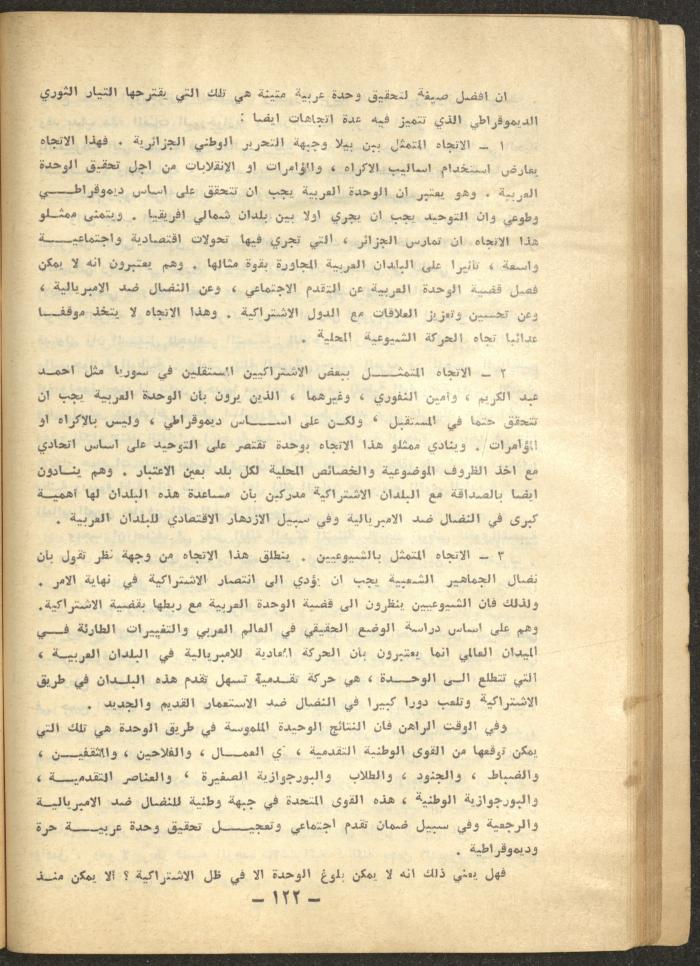 ان افضل صيغة لتحقيق وحدة عربية متينة هي تلك التي يقترحها التيار الثوري
الديموقراطي الذي تتميز فيه عدة اتجاهات ايضا :
١ ــ الاتجاه المتمثل ببن بيلا وجبهة التحرير الوطني الجزائرية . فهذا الاتجاه
يعارض استخدام اساليب الاكراه ، والمؤامرات او الانقلابات من اجل تحقيق الوحدة
العربية . وهو يعتبر ان الوحدة العربية يجب ان تتحقق على اساس ديموقراطي
وطوعي وان التوحيد يجب ان يجري اولا بين بلدان شمالي افريقيا . ويتمنى ممثلو
هذا الاتجاه ان تمارس الجزائر ، التي تجري فيها تحولات اقتصادية واجتماعية
واسعة ، تأثيرا على البلدان العربية المجاورة بقوة مثالها . وهم يعتبرون انه لا يمكن
فصل قضية الوحدة العربية عن التقدم الاجتماعي ، وعن النضال ضد الامبريالية ،
وعن تحسين وتعزيز العلاقات مع الدول الاشتراكية . وهذا الاتجاه لا يتخذ موقفا
عدائيا تجاه الحركة الشيوعية المحلية .
٢ ــ الاتجاه المتمثل ببعض الاشتراكيين المستقلين في سوريا مثل احمد
عبد الكريم ، وأمين النفوري ، وغيرهما ، الذين يرون بأن الوحدة العربية يجب ان
تتحقق حتما في المستقبل ، ولكن على اساس ديموقراطي ، وليس بالاكراه او
المؤامرات . وينادي ممثلو هذا الاتجاه بوحدة تقتصر على التوحيد على اساس اتحادي
مع اخذ الظروف الموضوعية والخصائص المحلية لكل بلد بعين الاعتبار . وهم ينادون
ايضا بالصداقة مع البلدان الاشتراكية مدركين بأن مساعدة هذه البلدان لها أهمية
كبرى في النضال ضد الامبريالية وفي سبيل الازدهار الاقتصادي للبلدان العربية .
٣ ــ الاتجاه المتمثل بالشيوعيين . ينطلق هذا الاتجاه من وجهة نظر تقول بأن
نضال الجماهير الشعبية يجب ان يؤدي الى انتصار الاشتراكية في نهاية الامر .
ولذلك فان الشيوعيين ينظرون الى قضية الوحدة العربية مع ربطها بقضية الاشتراكية.
وهم على اساس دراسة الوضع الحقيقي في العالم العربي والتغييرات الطارئة في
الميدان العالمي انما يعتبرون بأن الحركة المعادية للامبريالية في البلدان العربية ،
التي تتطلع الى الوحدة ، هي حركة تقدمية تسهل تقدم هذه البلدان في طريق
الاشتراكية وتلعب دورا كبيرا في النضال ضد الاستعمار القديم والجديد .
وفي الوقت الراهن فان النتائج الوحيدة الملموسة في طريق الوحدة هي تلك التي
يمكن توقعها من القوى الوطنية التقدمية ، ي العمال ، والفلاحين ، والمثقفين ،
والضباط ، والجنود ، والطلاب والبورجوازية الصغيرة ، والعناصر التقدمية ،
والبورجوازية الوطنية ، هذه القوى المتحدة في جبهة وطنية للنضال ضد الامبريالية
والرجعية وفي سبيل ضمان تقدم اجتماعي وتعجيل تحقيق وحدة عربية حرة
وديموقراطية .
فهل يعني ذلك انه لا يمكن بلوغ الوحدة الا في ظل الاشتراكية ؟ ألا يمكن منذ
ــ ١٢٢ ــ